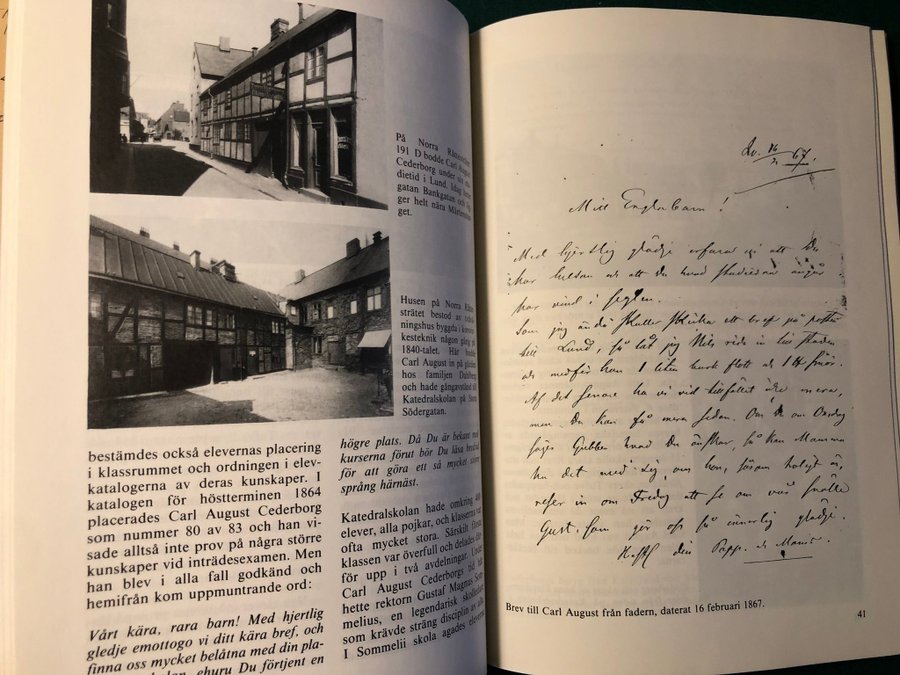 På Norra
191 D bodde Carl
Cederborg under sin
dietid i Lund. Idag
gatan Bankgatan och
ger helt nära Mårtens-
get.
Husen på Norra
strätet bestod av
ningshus byggda i
kesteknik någon gång på
1840-talet. Här bodde
Carl August in på
hos familjen
och hade gångavstånd till
Katedralskolan på Stora
Södergatan.
bestämdes också elevernas placering
i klassrummet och ordningen i elev-
katalogerna av deras kunskaper. I
katalogen för höstterminen 1864
placerades Carl August Cederborg
som nummer 80 av 83 och han vi-
sade alltså inte prov på några större
kunskaper vid inträdesexamen. Men
han blev i alla fall godkänd och
hemifrån kom uppmuntrande ord:
Vårt kära, rara barn! Med hjertlig
gledje emottogo vi ditt kära bref, och
finna oss mycket belåtna med din pla-
ehuru Du förtjent en
högre plats. Då Du är bekant med
kurserna förut bör Du läsa
för att göra ett så mycket större
språng härnäst.
Katedralskolan hade omkring 400
elever, alla pojkar, och klasserna var
ofta mycket stora. Särskilt första
klassen var överfull och delades där-
för upp i två avdelningar. Under
Carl August Cederborgs tid
hette rektorn Gustaf Magnus Som-
melius, en legendarisk
som krävde sträng disciplin av
I Sommelii skola agades
16 67.
Mitt Englabarn!
Med hjertlig glädje erfara vi att Du
mår bra och att du hvad studierna angår
har vind i seglen.
Som jag ändå skulle skicka ett bref på posten
till Lund, så lät jag Nils rida in till staden
och medför han 1 liten burk flott och 1 smör.
Af det senare ha vi vid tillfället icke mera,
men Du kan få mera sedan. Om Du om Onsdag
säger Gubben hvad Du önskar, så kan Mamma
ha det med sig, om hon, såsom troligt är,
reser in om Fredag att se om vår snälle
Gust, som gör oss så innerlig glädje.
din Pappa och Mamma
Brev till Carl August från fadern, daterat 16 februari 1867.
41